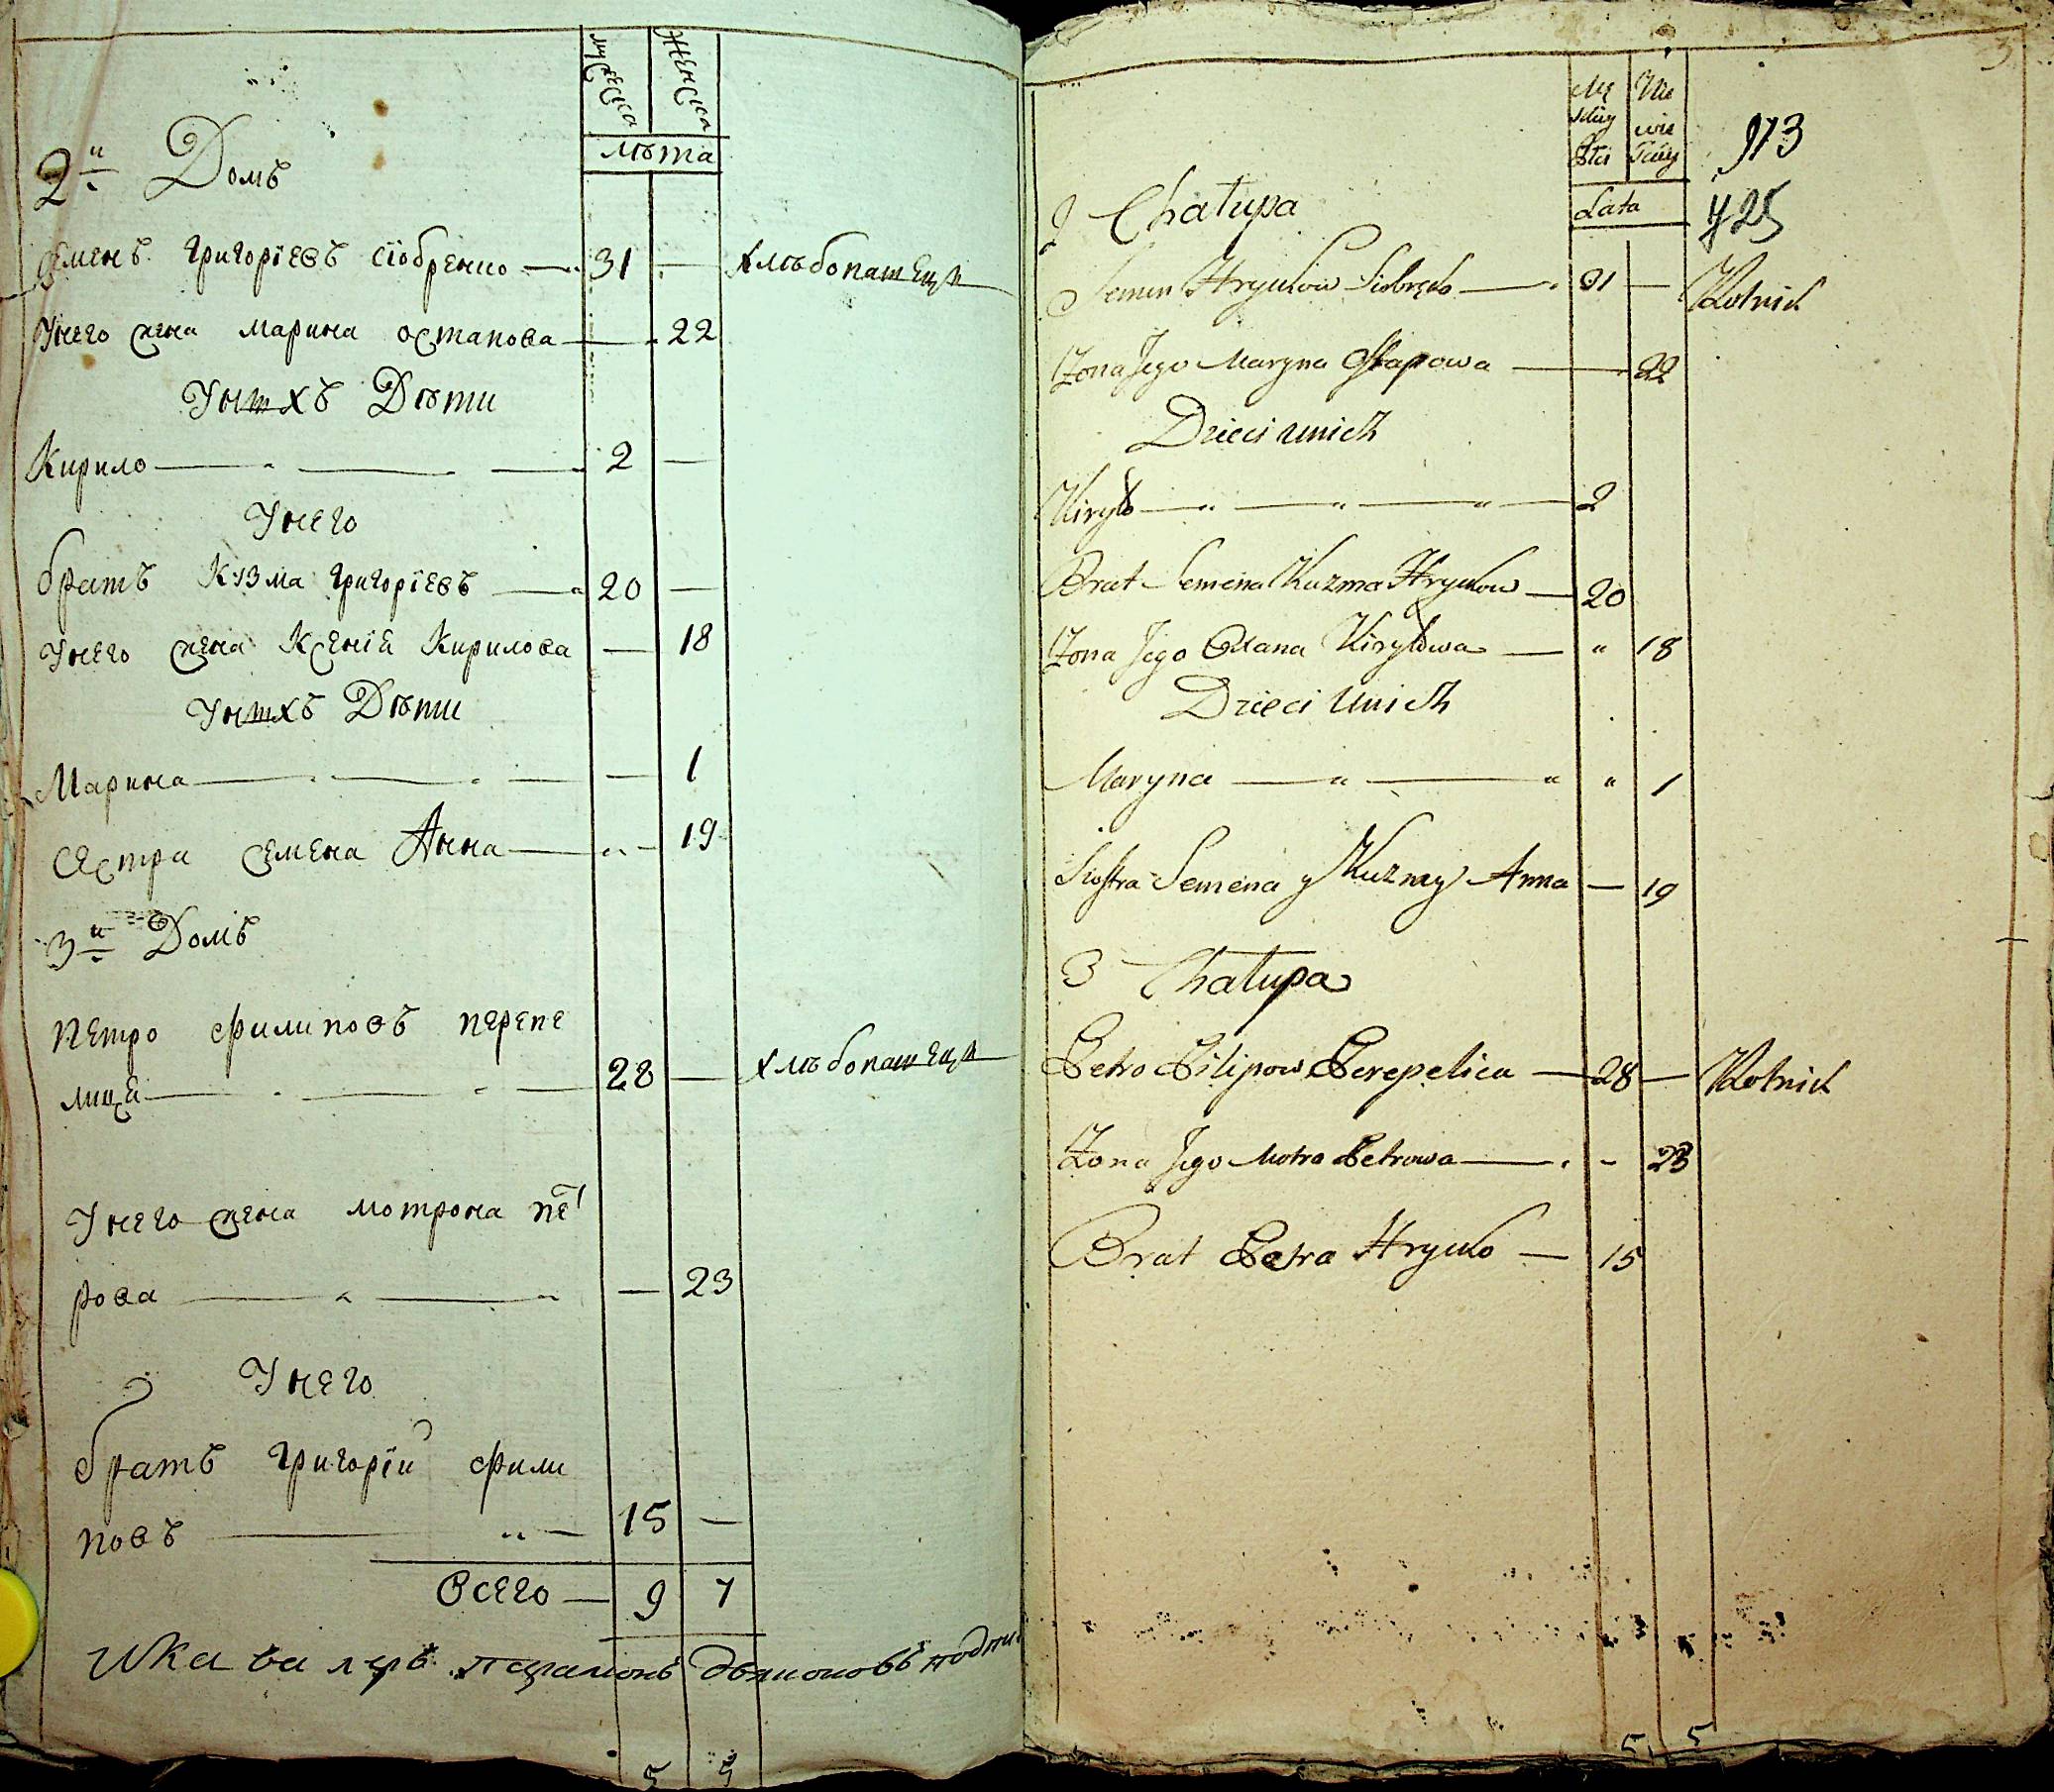 мужеска женска
лѣта
2й Домъ
Семенъ григорїевъ сїобренко 31 — хлѣбопашецъ
Унего жена марина остапова — 22
Унихъ Дѣти
Кирило 2 —
Унего
братъ Кузма григорїевъ 20 —
Унего жена Ксенїя Кирилова — 18
Унихъ Дѣти
Марина — 1
Сестра Семена Анна — 19
3й Домъ
Петро филиповъ перепе
лица 28 — хлѣбопашецъ
Унего жена мотрона пет
рова — 23
Унего
братъ григорїй фили
повъ 15 —
Всего — 9 7
5 5
3
Mę Nie
skiey wie
Płci sciey
Lata
973
725
2 Chałupa
Semen Hryckow Siobręko — 31 — Rolnick
Żona Jego Maryna Ostapowa — 22
Dzieci unich
Kiryło — 2
Brat Semena Kuzma Hryckow — 20
Żona Jego Oxana Kiryłowa — " 18
Dzieci Unich
Maryna — " — " " 1
Siostra Semena y Kuzmy Anna — 19
3 Chałupa
Petro Pilipow Perepelica — 28 — Rolnick
Żona Jego Motra Petrowa — - 23
Brat Petra Hrycko — 15
5 5